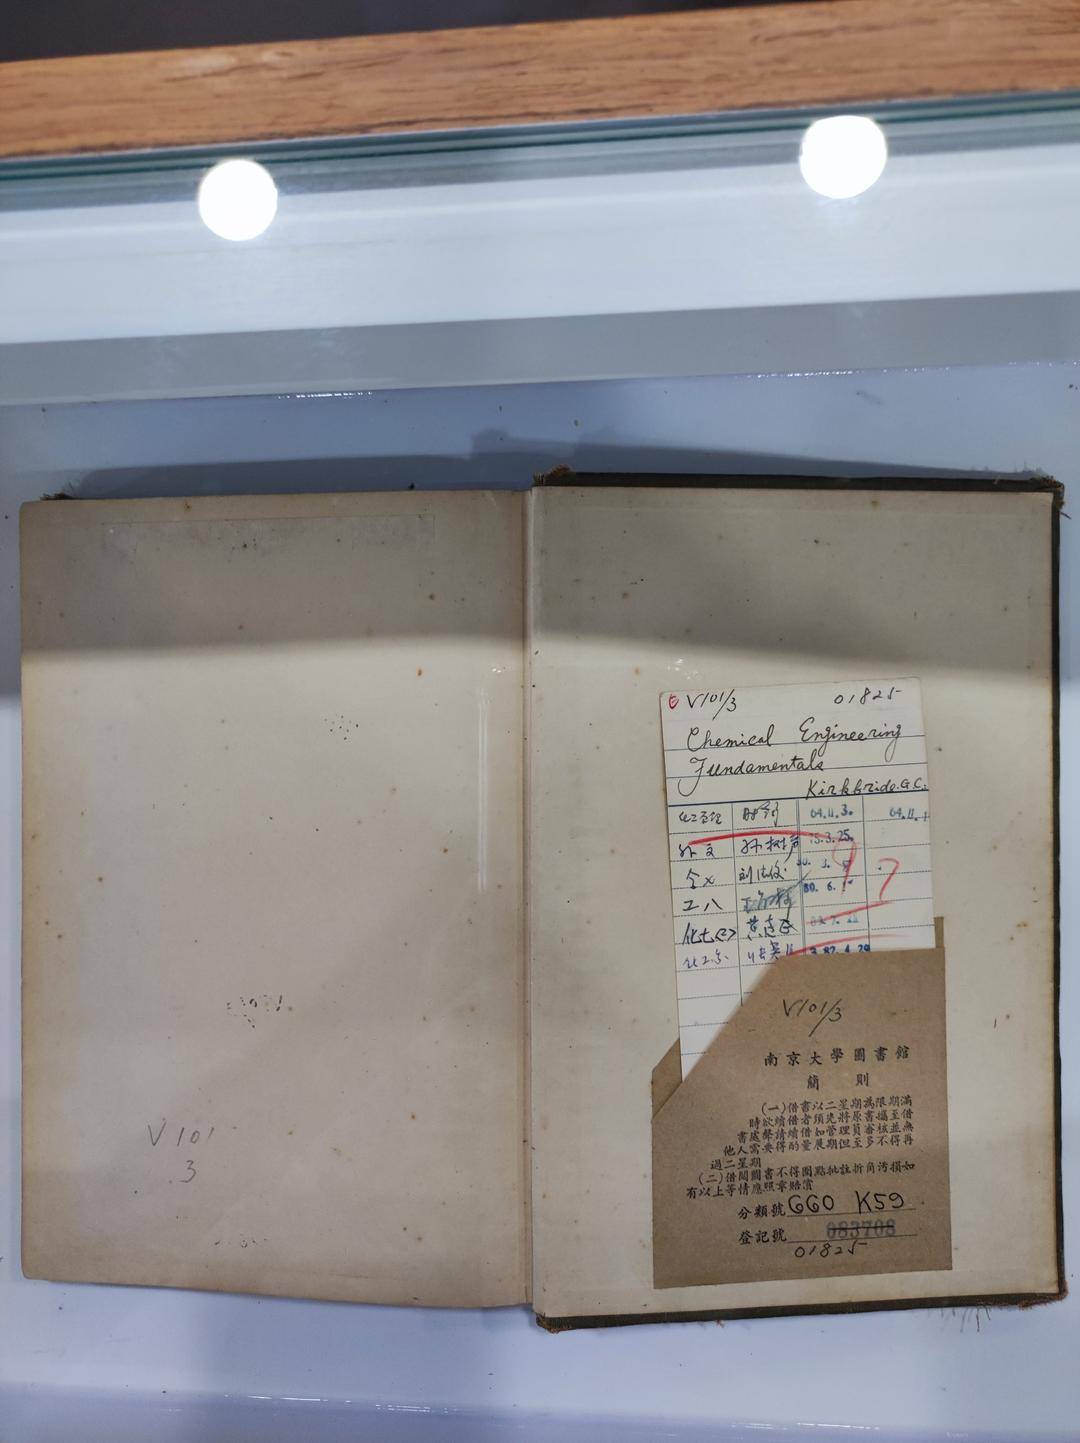 V101
3
V101/3 01825
Chemical Engineering
Fundamentals
Kirkbride. G.C.
64.11.3. 64.11.1
外文 孙树声 75.3.25.
刘法俊
工八 80.6.1
黄连
82.4.29
V101/3
南京大學圖書館
簡則
(一)借書以二星期為限期滿
時欲續借者須先將原書攜至借
書處聲請續借如管理員審核並無
他人需要得酌量展期但至多不得再
過二星期
(二)借閱圖書不得圈點批註折角污損如
有以上等情應照章賠償
分類號 660 K59
登記號 083708
01825